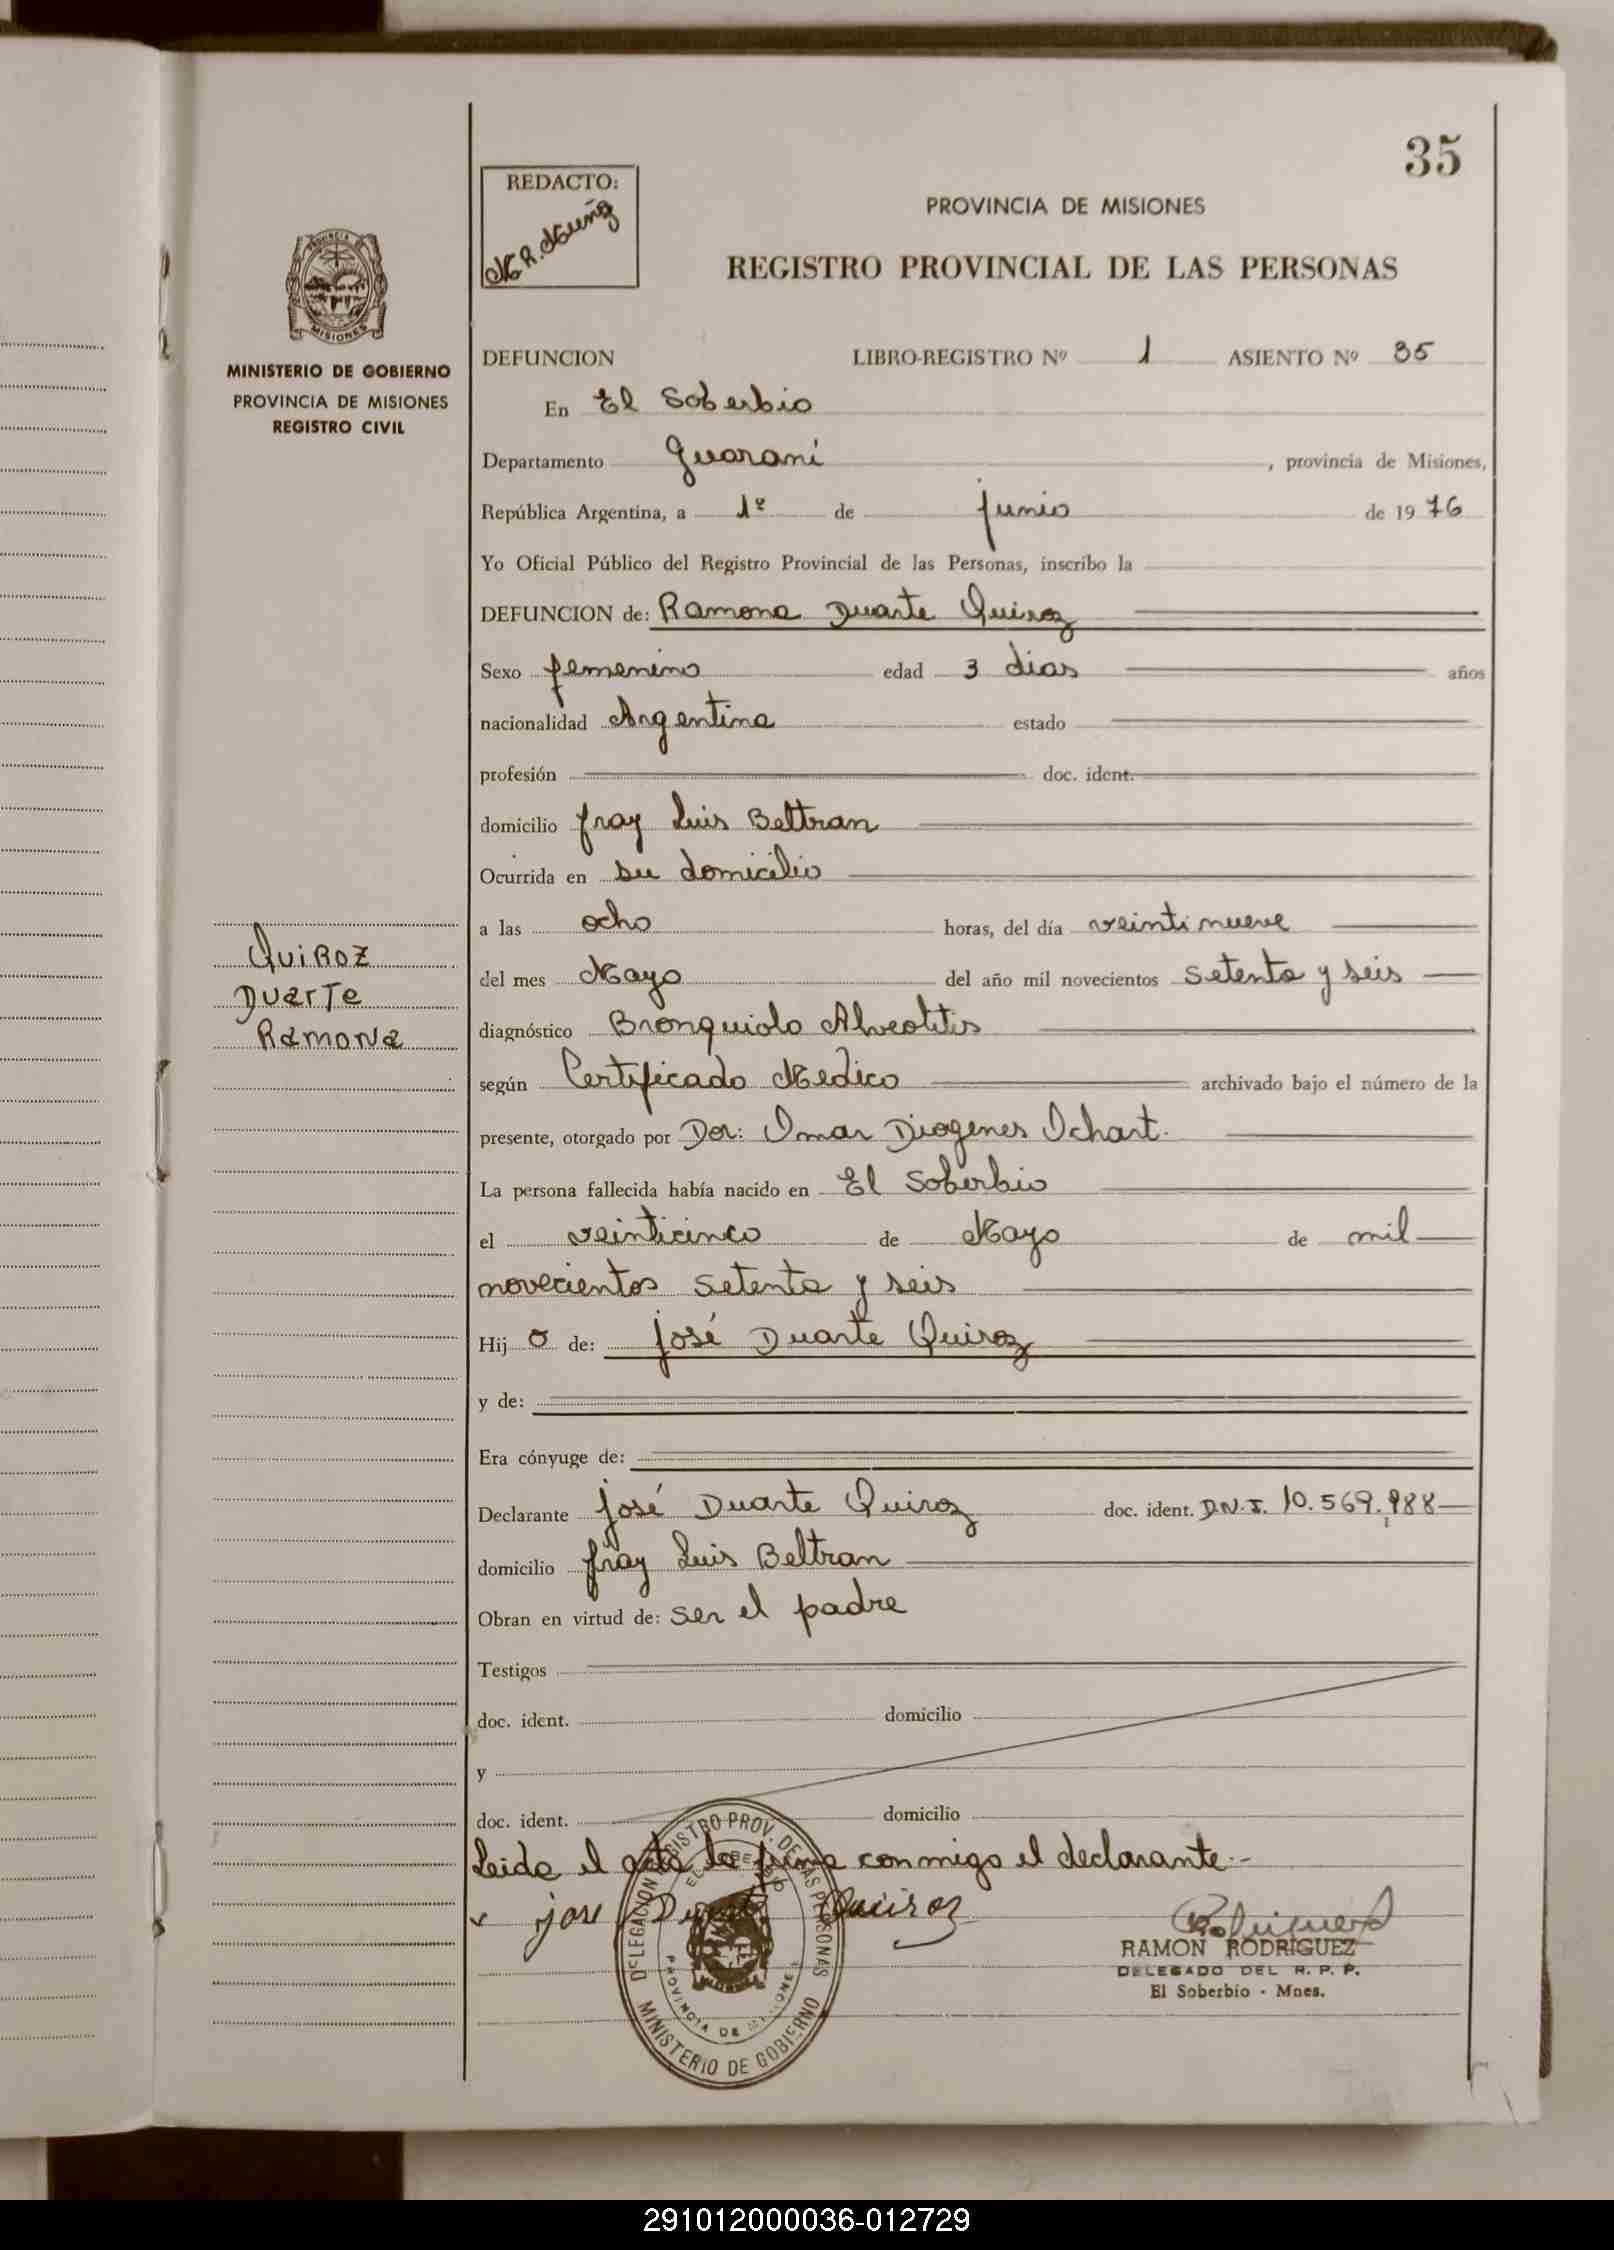 35
REDACTO:
M.R. Muñoz
PROVINCIA DE MISIONES
REGISTRO PROVINCIAL DE LAS PERSONAS
PROVINCIA DE
MISIONES
MINISTERIO DE GOBIERNO
PROVINCIA DE MISIONES
REGISTRO CIVIL
DEFUNCION LIBRO-REGISTRO Nº 1 ASIENTO Nº 35
En El Soberbio
Departamento Guarani, provincia de Misiones,
República Argentina, a 1º de junio de 1976
Yo Oficial Público del Registro Provincial de las Personas, inscribo la
DEFUNCION de: Ramona Duarte Quiroz
Sexo femenino edad 3 dias años
nacionalidad Argentina estado
profesión doc. ident.
domicilio fray Luis Beltran
Ocurrida en su domicilio
a las ocho horas, del día veintinueve
del mes Mayo del año mil novecientos setenta y seis
QUIROZ
DUARTE
RAMONA
diagnóstico Bronquiolo Alveolitis
según Certificado Medico archivado bajo el número de la
presente, otorgado por Dor: Omar Diogenes Ochart.
La persona fallecida había nacido en El Soberbio
el veinticinco de Mayo de mil
novecientos setenta y seis
Hij o de: José Duarte Quiroz
y de:
Era cónyuge de:
Declarante José Duarte Quiroz doc. ident. D.N.I. 10.569.988
domicilio fray Luis Beltran
Obran en virtud de: ser el padre
Testigos
doc. ident. domicilio
y
doc. ident. domicilio
Leida el acta la firma conmigo el declarante.-
jose Duarte Quiroz
DELEGACION REGISTRO PROV. DE LAS PERSONAS
EL SOBERBIO
PROVINCIA DE MISIONES
MINISTERIO DE GOBIERNO
Rodriguez
RAMON RODRIGUEZ
DELEGADO DEL R. P. P.
El Soberbio - Mnes.
291012000036-012729